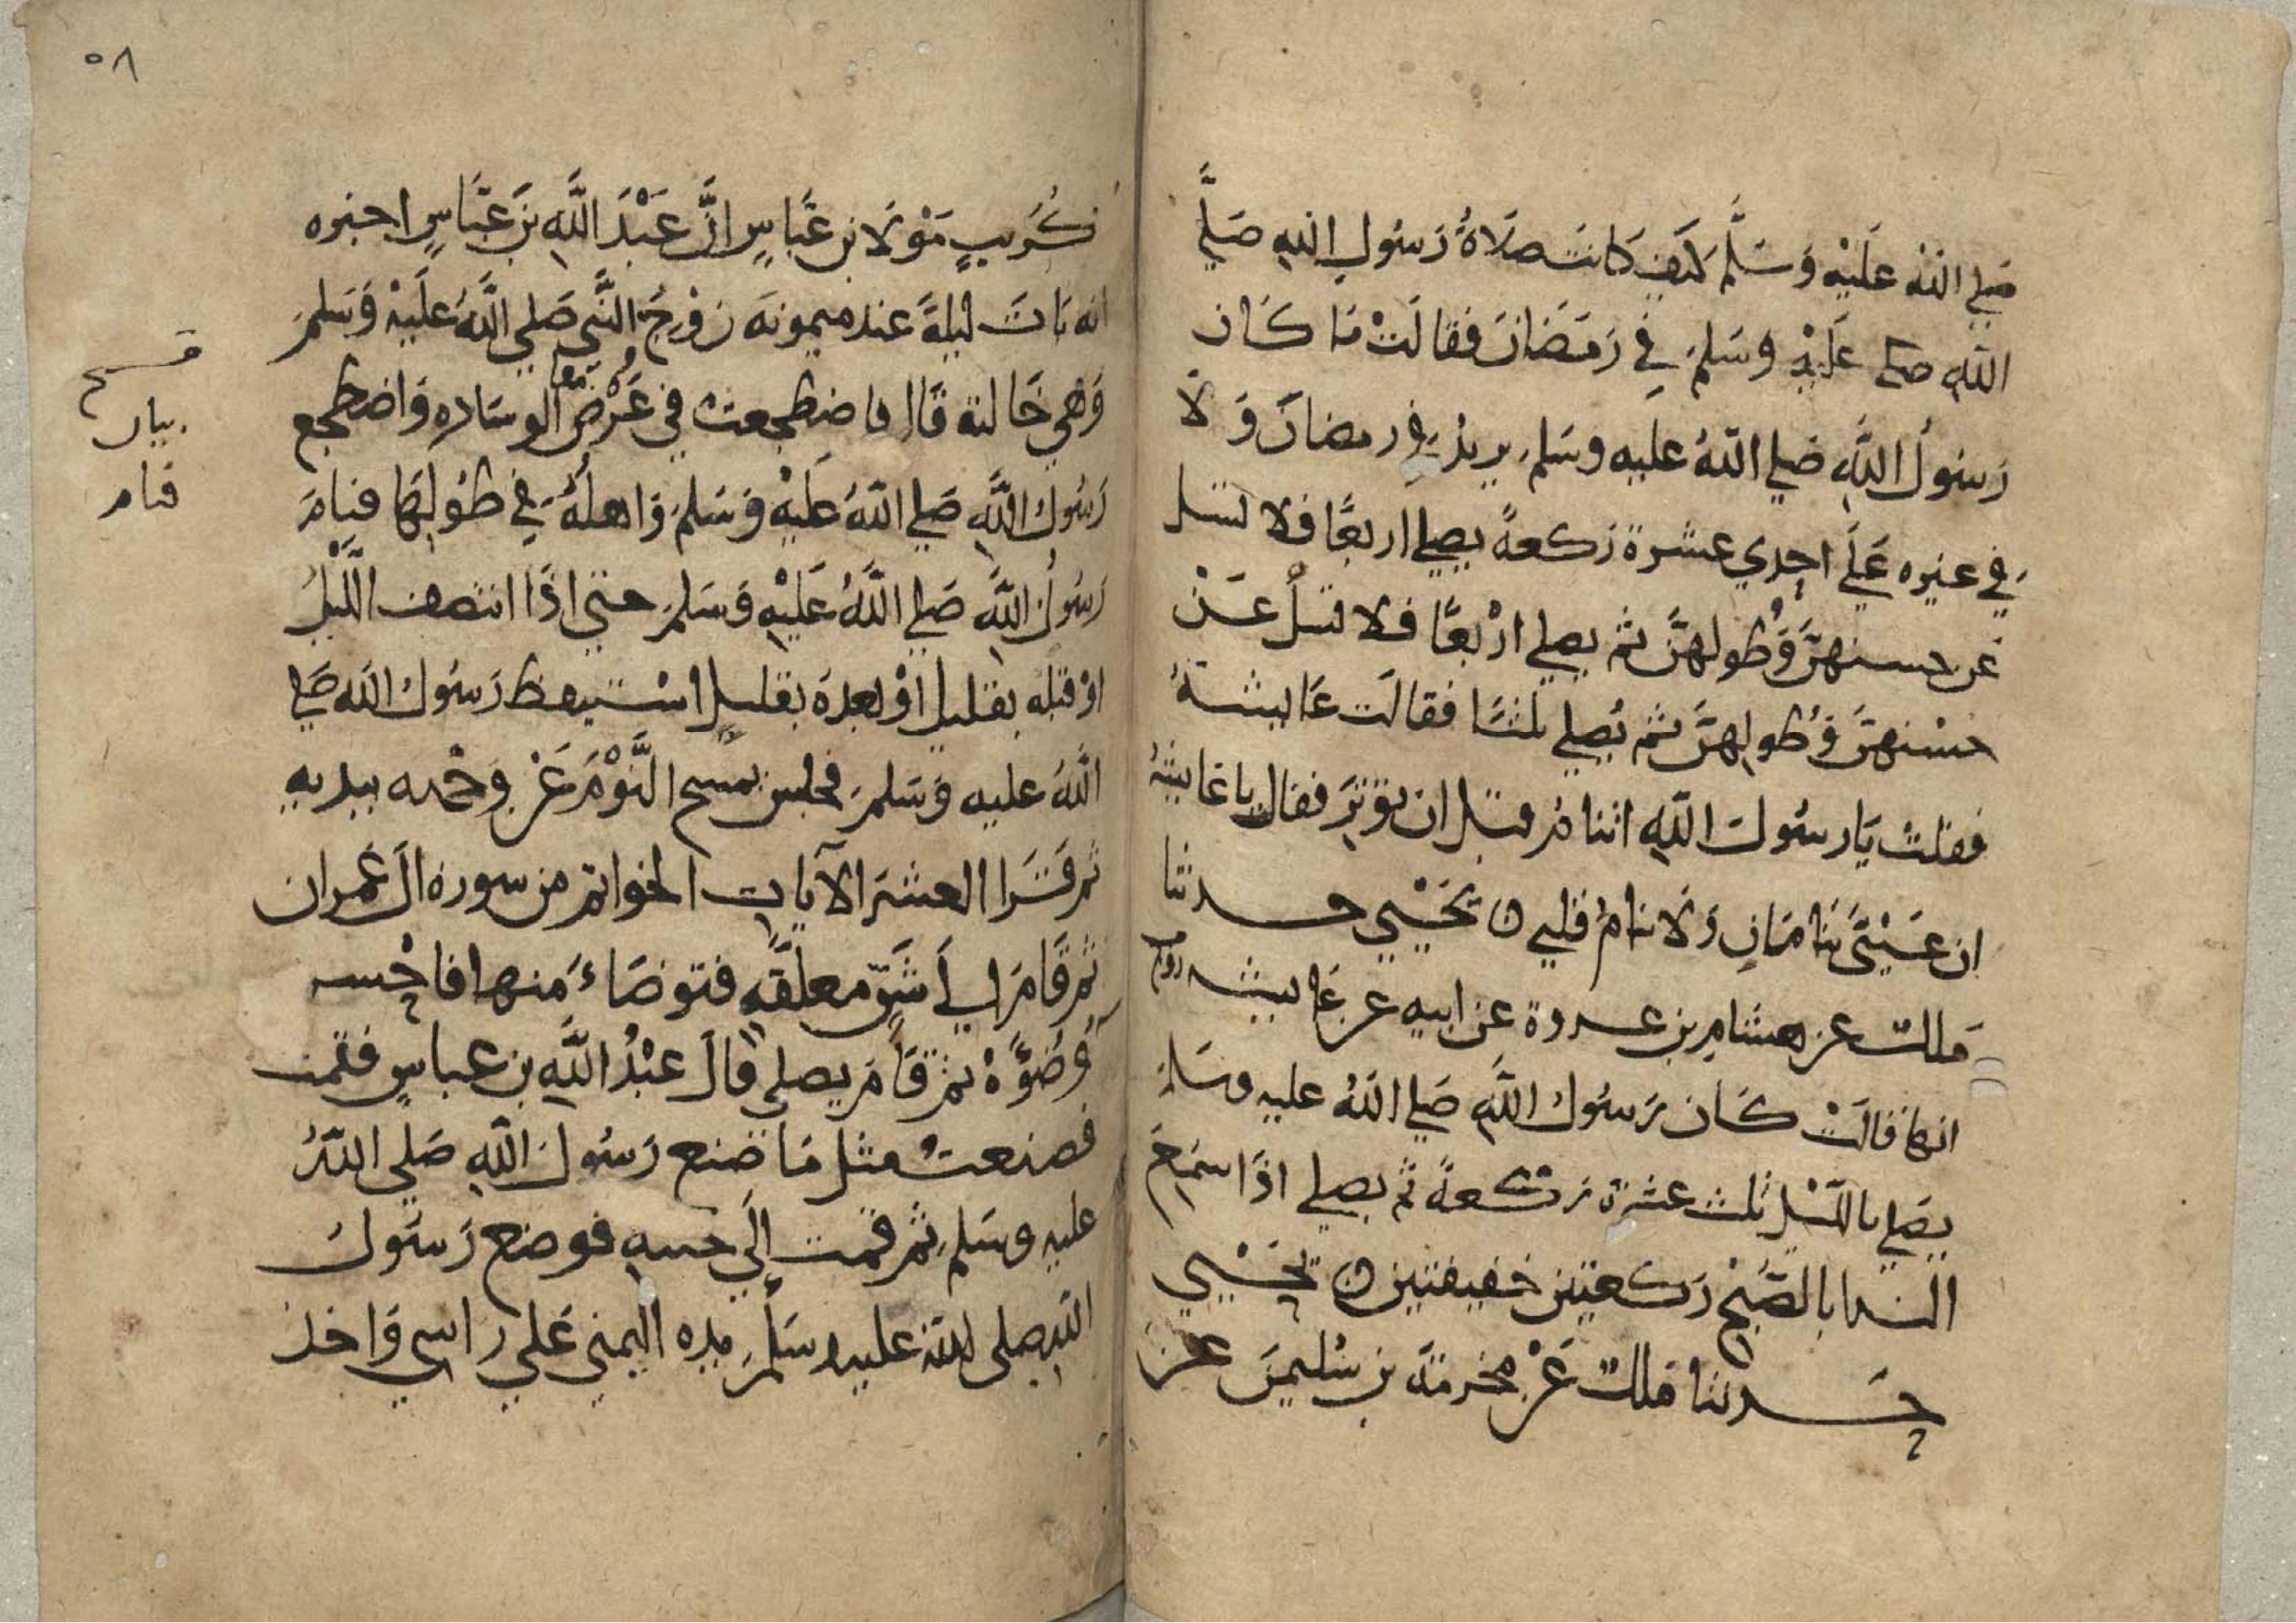 صَلي اللهُ عَلَيْه وَسَلَّم كيَف كانت صَلاةُ رَسُول الله صَلي
اللهِ صلى عَلَيْهِ وسَلمَ فِي رَمَضَانَ فقالَتْ مَا كَان
رَسُولُ اللَّهِ صَلي اللهُ عليه وسَلم يزيدُ في رمضانَ وَلَا
في غيره عَلَى احدي عشرة ركعةً يصلي اربعًا فلا تسل
عن حسنهنَّ وَطولهنَّ ثم يصلي ارْبعًا فلا تسلْ عَنْ
حسْنهنَّ وَطُولهنَّ ثم يُصلي ثلثًا فقالَت عَايشةُ
فقلتُ يَا رسُولَ اللهِ اتنامُ قبل ان تُوْتِرَ فقال يا عَايشةُ
ان عَيْنَيَّ تنامَانِ وَلا ينامُ قلبي ن يَحْيي حدثنا
مَلك عن هشام بن عروة عن ابيه عن عَايشه زوج
انها قالَتْ كَان رَسُولُ اللَّهِ صَلي اللهُ عليه وسَلم
يصَلي بالليْل ثلث عشرة ركعةً ثم يصلي اذا سَمِعَ
الندا بالصُّبْح رَكعتين خفيفتين ن يَحْيي
حَدثنا مَلك عَنْ مخرمَة بن سُليمنَ عن
٥٨
كُرَيبٍ مَوْلا بن عَبَّاسٍ انَّ عَبْدَ اللَّهِ بنَ عَبَّاسٍ اخبره
انه بَاتَ ليلةً عند ميمونة زَوْجِ النَّبي صَلي اللَّهُ عَلَيْهِ وَسَلمَ
وَهي خَالته قال فاضطجعتُ في عَرْض الوسَاده وَاضطجع
معا
رَسُولُ اللَّهِ صَلي اللهُ عَليْهِ وَسَلمَ وَاهلُهُ في طُولِهَا فنامَ
رَسُولُ اللَّهِ صَلي اللَّهُ عَليْهِ وَسَلمَ حتي اذَا انتصف اللَّيْلُ
اوْ قبْله بقليل اوْ بعدَه بقليلٍ اسْتيقظ رَسُولُ اللَه صَلي
اللهُ عليه وَسَلمَ فجلس يمسح النَّوْمَ عَنْ وَجْهه بيديه
ثم قَرَا العشرَ الآيات الخواتم من سورة ال عمران
ثم قَامَ الي شَنٍّ معلقَةٍ فتوضاءَ منها فاحْسن
وُضُوَّهُ ثم قَامَ يصلي قالَ عَبْدُ اللَّهِ بن عباسٍ فقمت
فصنعتُ مثل مَا صَنع رَسُولُ اللَّهِ صَلي اللهُ
عليه وسَلم ثم قمت اِلَي جنبهِ فوضع رَسُولُ
اللهِ صلى الله عليه وسَلمَ يده اليمني عَلي راسي وَاخذ
بيان
فنام